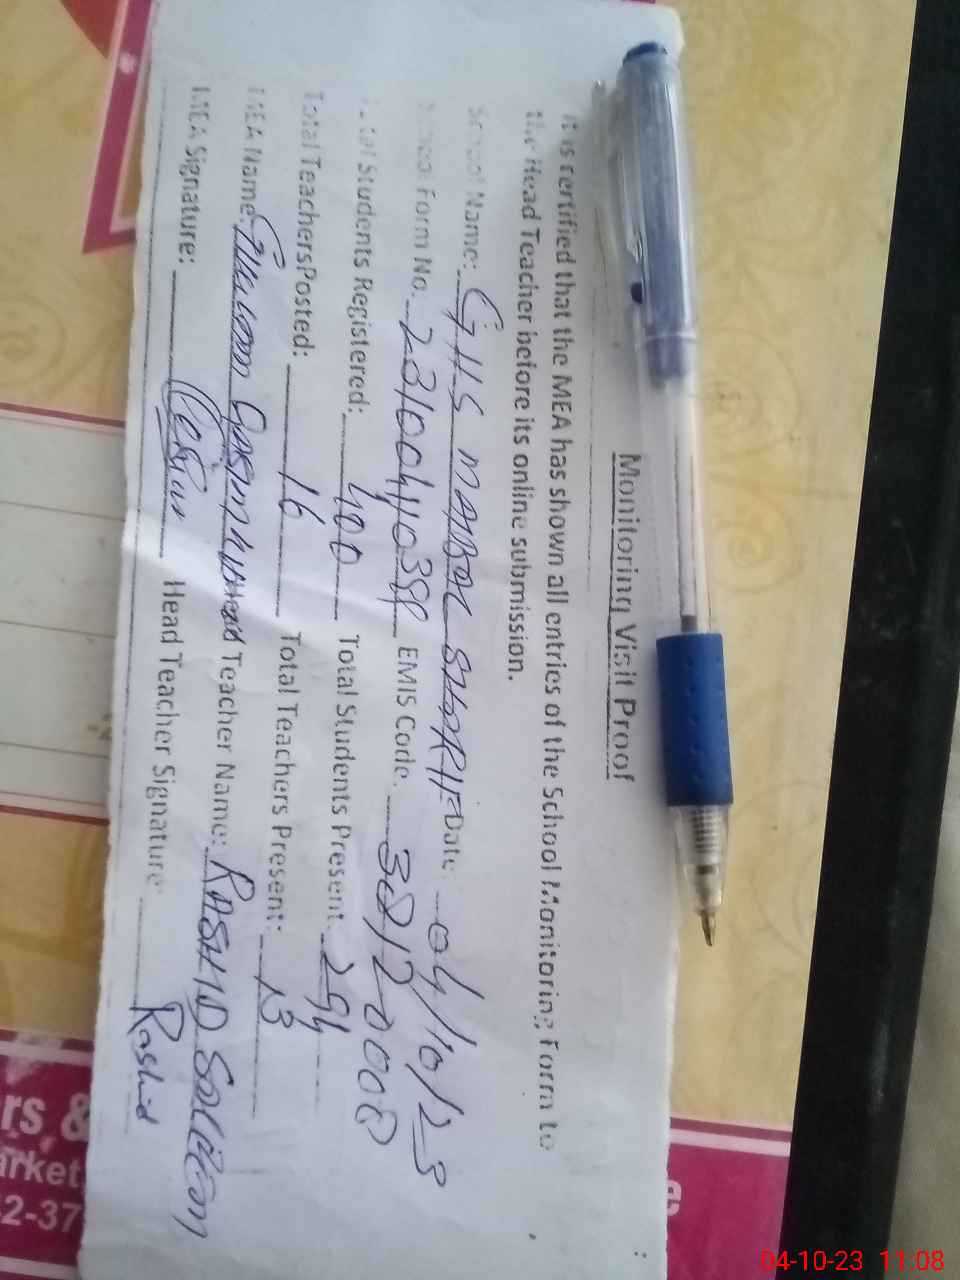 Monitoring Visit Proof
It is certified that the MEA has shown all entries of the School Monitoring Form to
the Head Teacher before its online submission.
School Name: GHS Date: 04/10/23
School Form No: EMIS Code: 38120008
Total Students Registered: 400 Total Students Present: 294
Total Teachers Posted: 16 Total Teachers Present: 13
MEA Name: Head Teacher Name: RASHID Saleem
MEA Signature: Head Teacher Signature: Rashid
rs &
arket
2-37
e
04-10-23 11:08